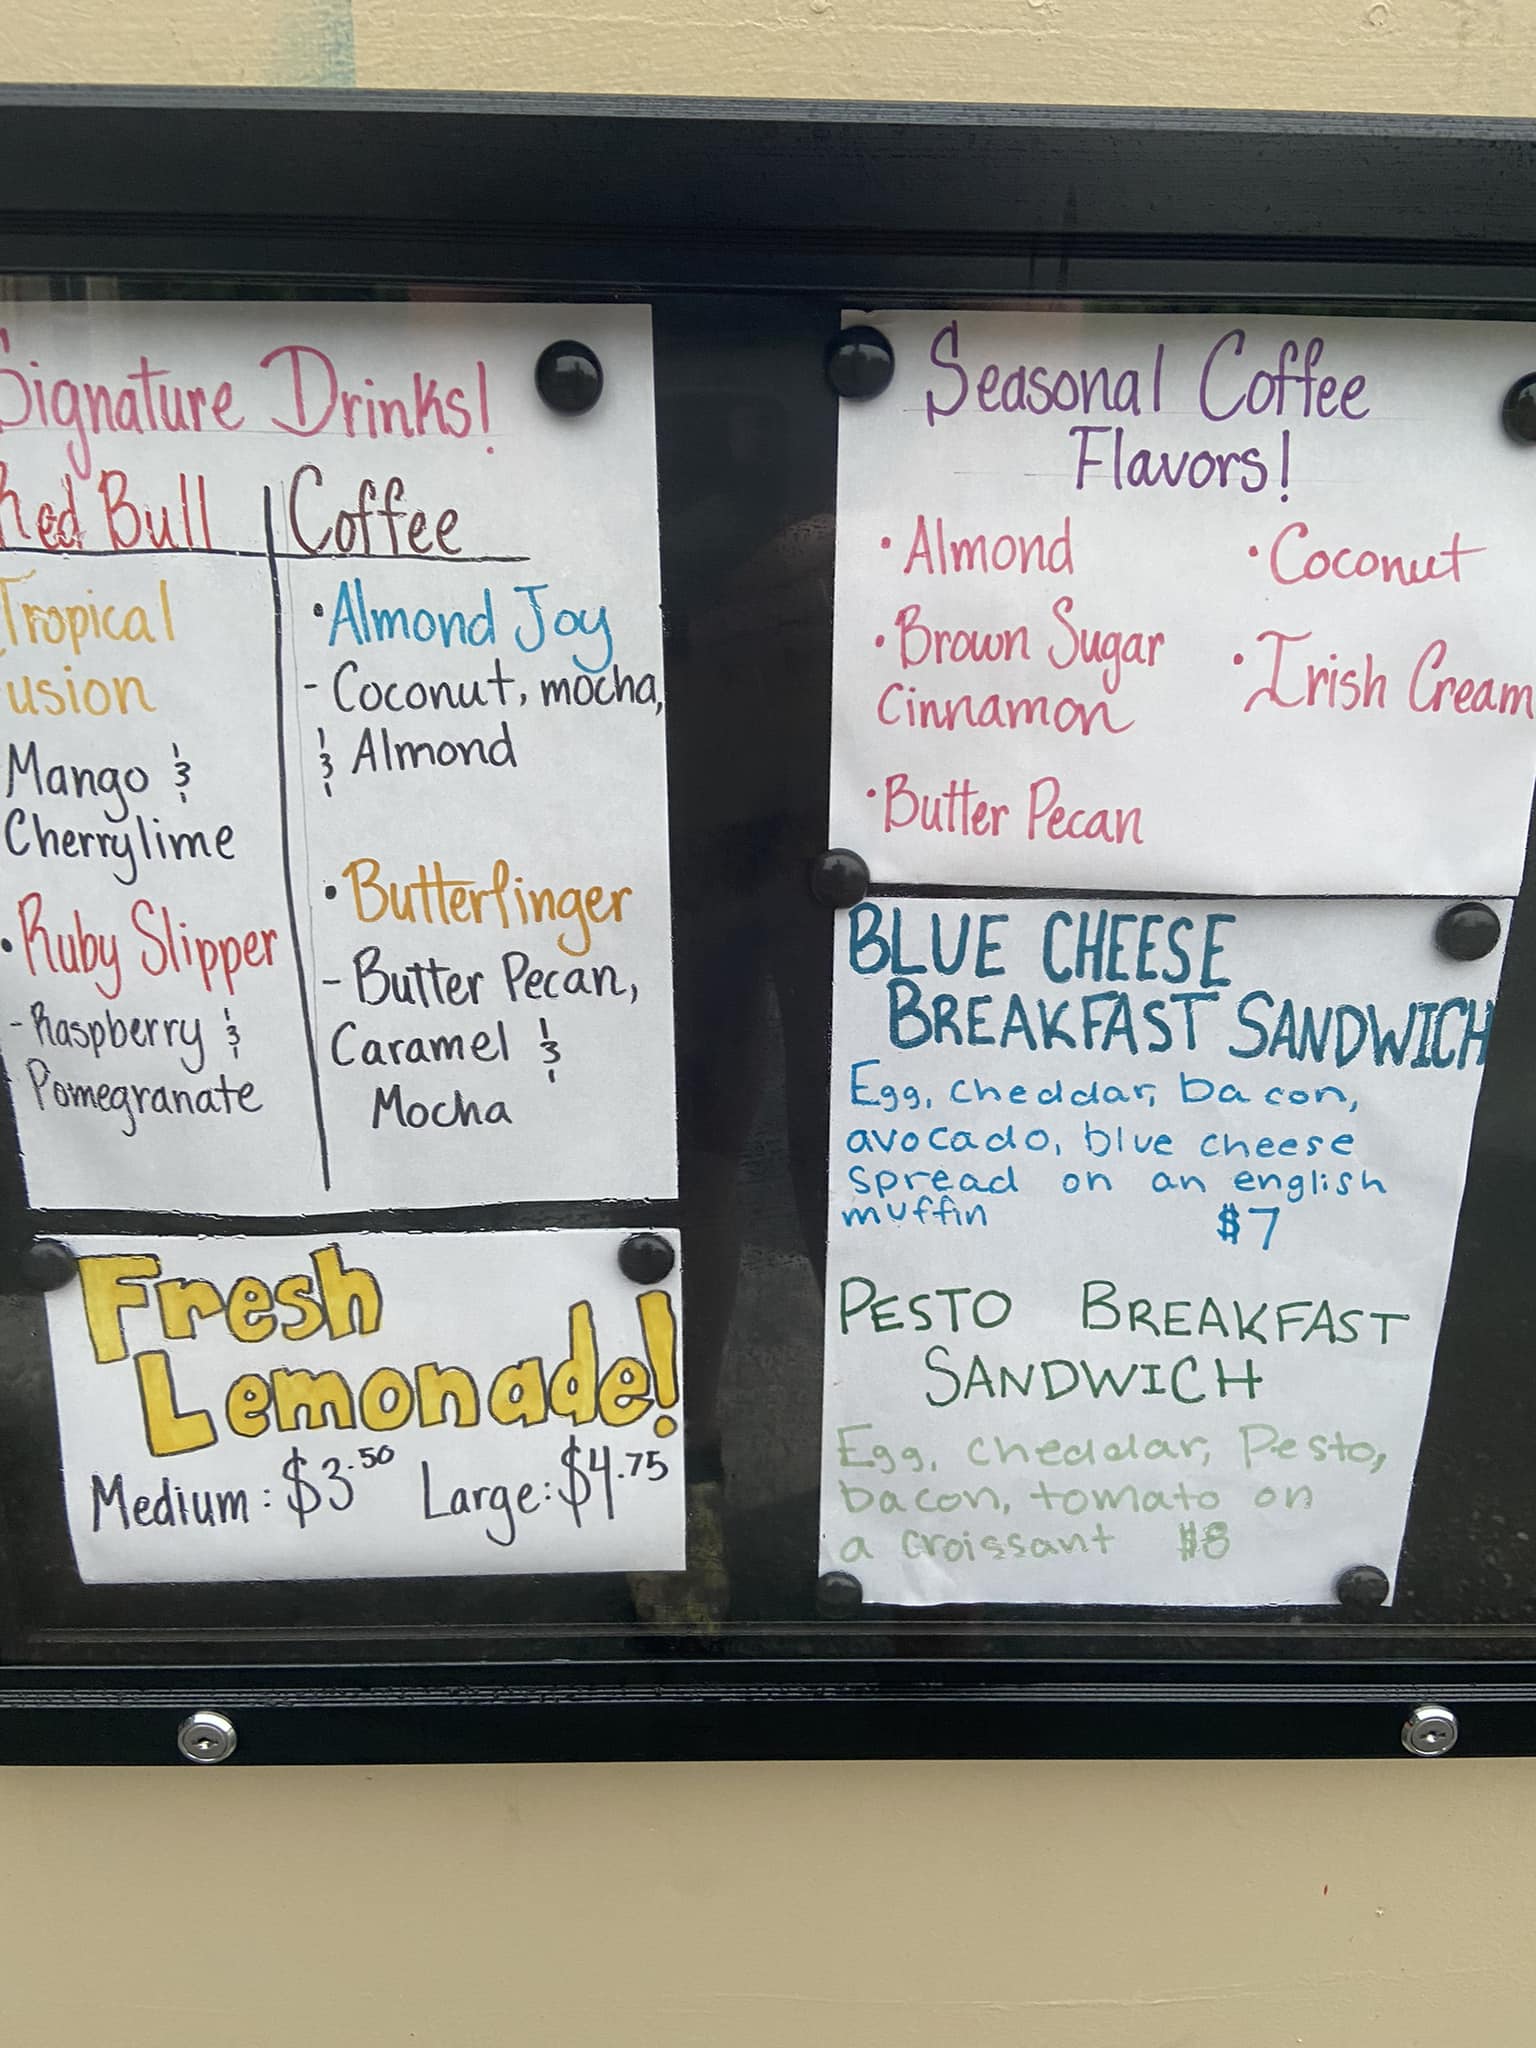 Signature Drinks!
Red Bull
Tropical
usion
Mango &
Cherrylime
• Ruby Slipper
- Raspberry &
Pomegranate
Coffee
• Almond Joy
- Coconut, mocha,
& Almond
• Butterfinger
- Butter Pecan,
Caramel &
Mocha
Fresh
Lemonade!
Medium: $3.50 Large: $4.75
Seasonal Coffee
Flavors!
• Almond
• Brown Sugar
Cinnamon
• Butter Pecan
• Coconut
• Irish Cream
BLUE CHEESE
BREAKFAST SANDWICH
Egg, cheddar, bacon,
avocado, blue cheese
spread on an english
muffin $7
PESTO BREAKFAST
SANDWICH
Egg, cheddar, Pesto,
bacon, tomato on
a croissant $8